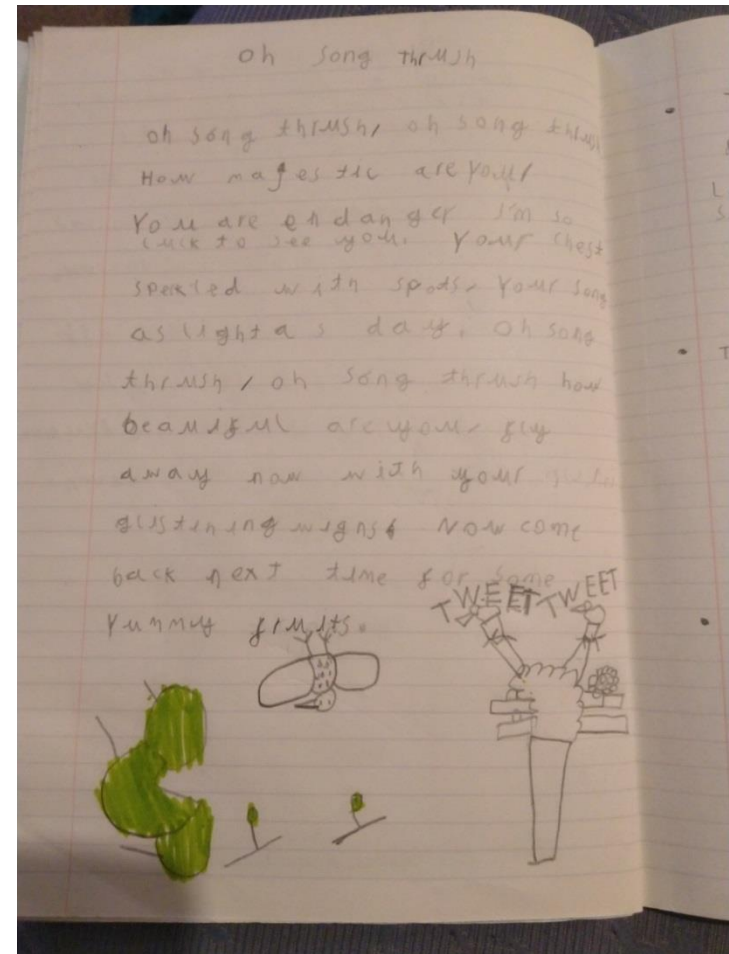 oh song Thrush
oh song thrush, oh song thrush
How magestic are your
You are endanger I'm so
luck to see you. Your chest
speckled with spots. Your song
as light as day. oh song
thrush, oh song thrush how
beautiful are your fly
away now with your
glistening wigns. Now come
back next time for some
Yummy fruits.
TWEET TWEET